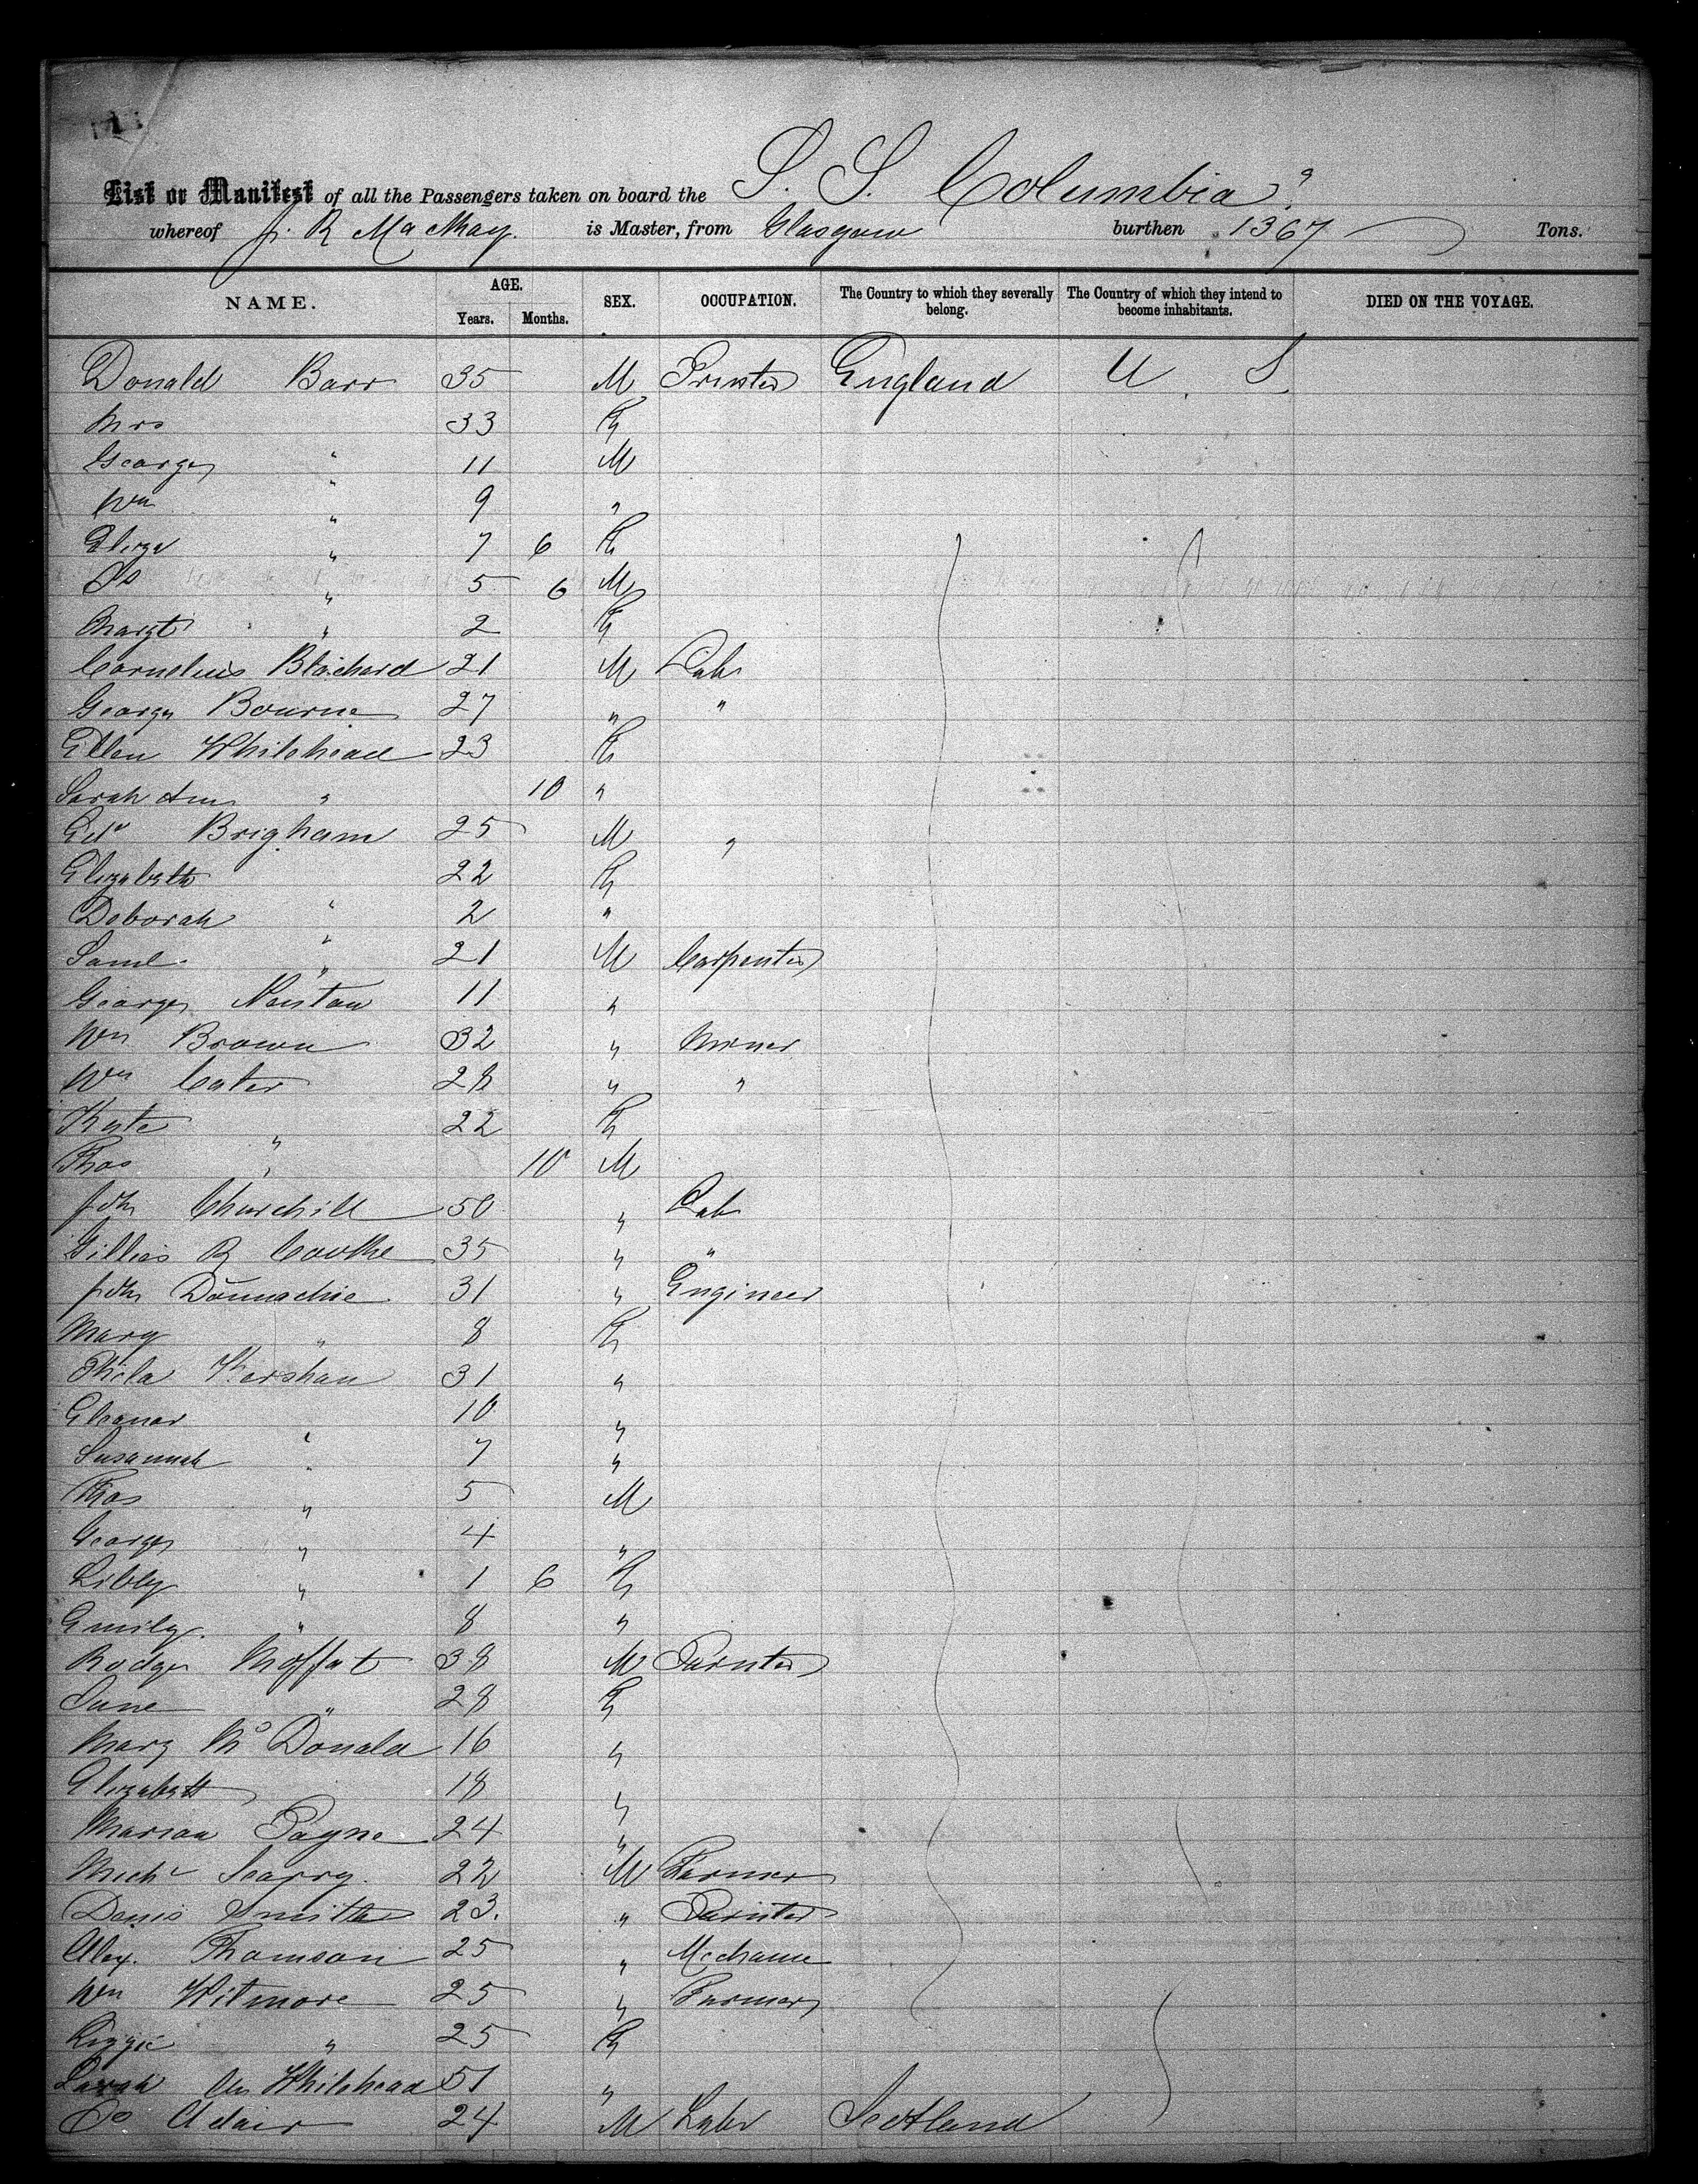 List or Manifest of all the Passengers taken on board the S. S. Columbia
whereof J. R MacKay. is Master, from Glasgow burthen 1367 Tons.
NAME. AGE. Years. Months. SEX. OCCUPATION. The Country to which they severally belong. The Country of which they intend to become inhabitants. DIED ON THE VOYAGE.
Donald Barr 35 M Printer England U S
Mrs 33 F
George " 11 M
Wm " 9 "
Eliza " 7 6 F
" 5 6 M
Margt " 2 F
Cornelius Blachard 21 M Lab
George Bourne 27 " "
Ellen Whitehead 23 F
Sarah Ann " 10 "
Edw Brigham 25 M "
Elizabeth 22 F
Deborah " 2 "
Saml " 21 M Carpenter
George 11 "
Wm Brown 32 " Miner
Wm Cater 28 " "
Kate " 22 F
Thos " 10 M
John Churchill 50 " Lab
Gillies R 35 " "
John Dounachie 31 " Engineer
Mary " 8 F
Kershaw 31 "
Eleanor " 10 "
Susannah " 7 "
Thos " 5 M
George " 4 "
Libby " 1 6 F
Emily " 8 "
Rodger Moffat 38 M Painter
Jane " 28 F
Mary McDonald 16 "
Elizabeth 18 "
Marian Payne 24 "
Michl Scarry 22 M Farmer
Denis Smith 23. " Painter
Alex. Thomson 25 " Mechanic
Wm Witmore 25 " Farmer
Lizzie " 25 F
Sarah An Whitehead 51 "
Adair 24 M Labr Scotland